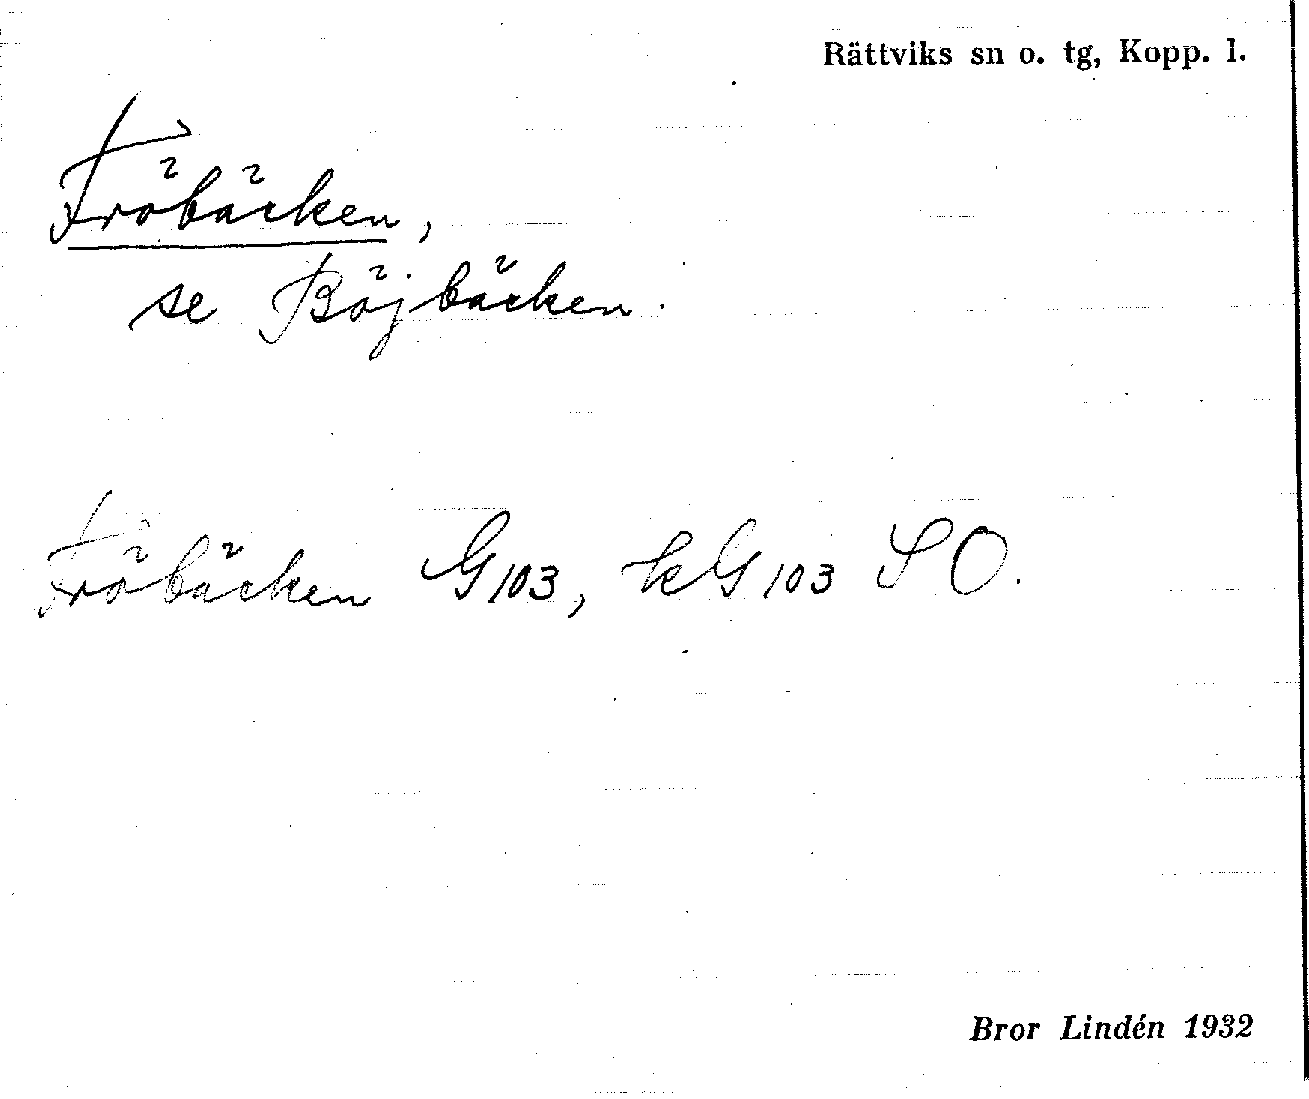 Rättviks sn o. tg, Kopp. l.
Fröbäcken,
se Böjbäcken.
Fröbäcken G103, kG103 SO.
Bror Lindén 1932